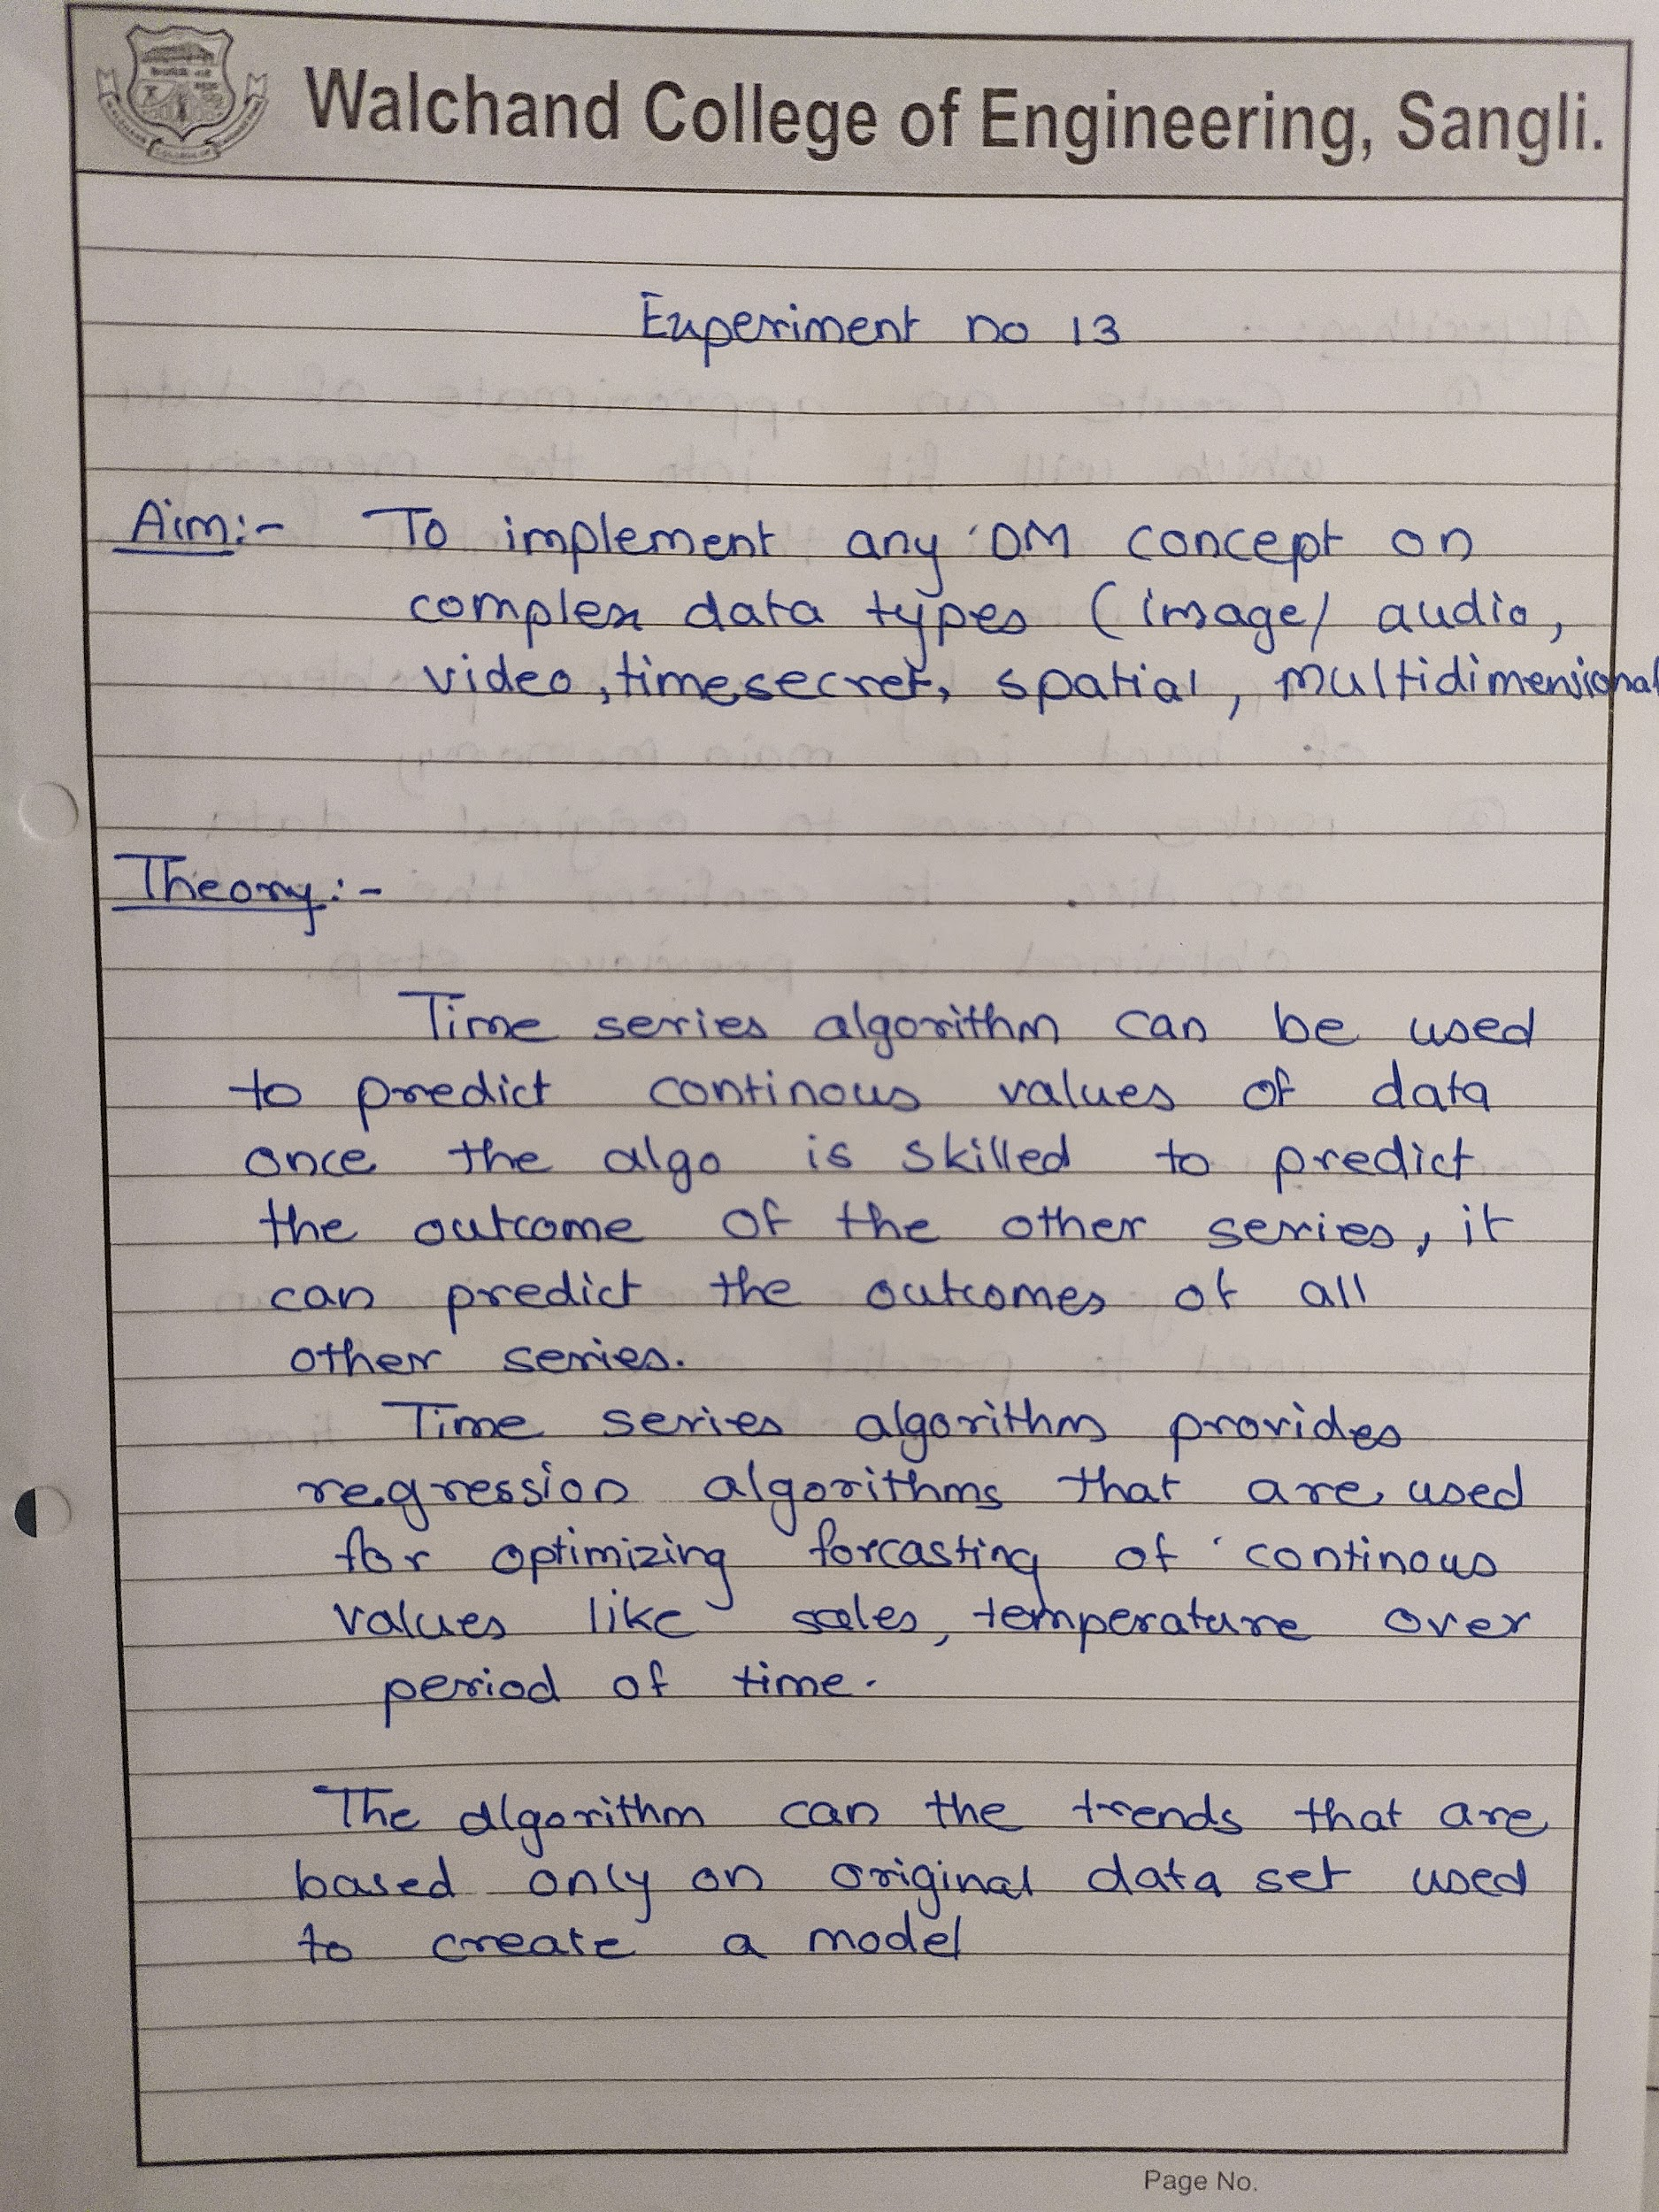 Walchand College of Engineering, Sangli.
Experiment no 13
Aim:- To implement any DM concept on
complex data types (image/ audio,
video, timesecret, spatial, multidimensional
Theory:-
Time series algorithm can be used
to predict continous values of data
once the algo is skilled to predict
the outcome of the other series, it
can predict the outcomes of all
other series.
Time series algorithm provides
regression algorithms that are used
for optimizing forcasting of continous
values like sales, temperature over
period of time.
The algorithm can the trends that are
based only on original data set used
to create a model
Page No.